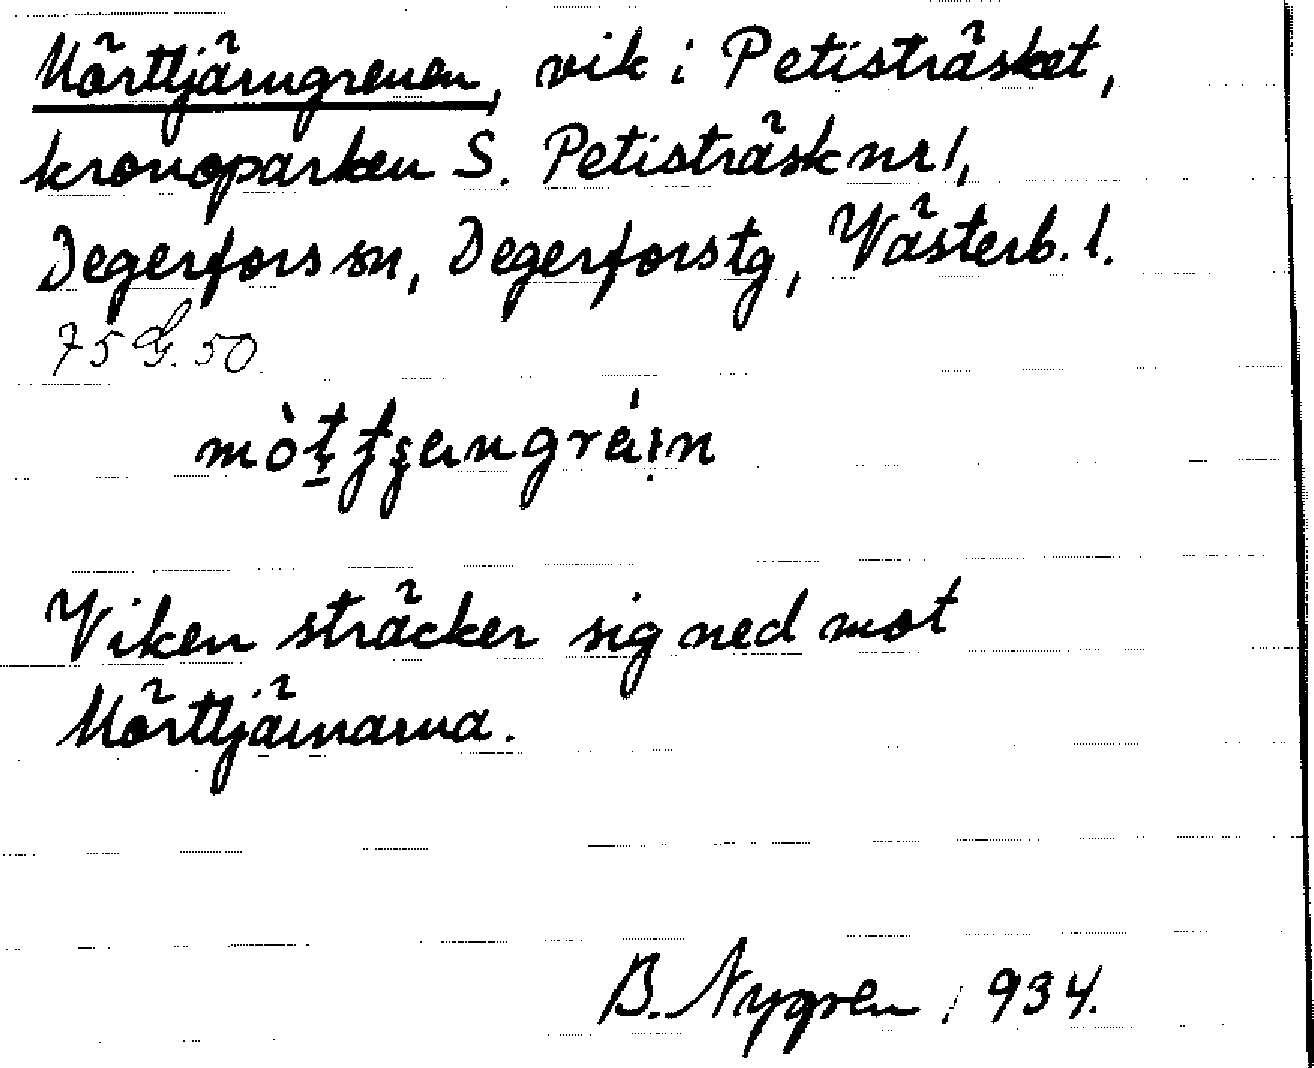 Mörttjärngrenen, vik i Petisträsket,
kronoparken S. Petisträsk nr 1,
Degerfors sn, Degerfors tg, Västerb. l.
75 G. 50
Viken sträcker sig ned mot
Mörttjärnarna.
B. Nygren 1934.